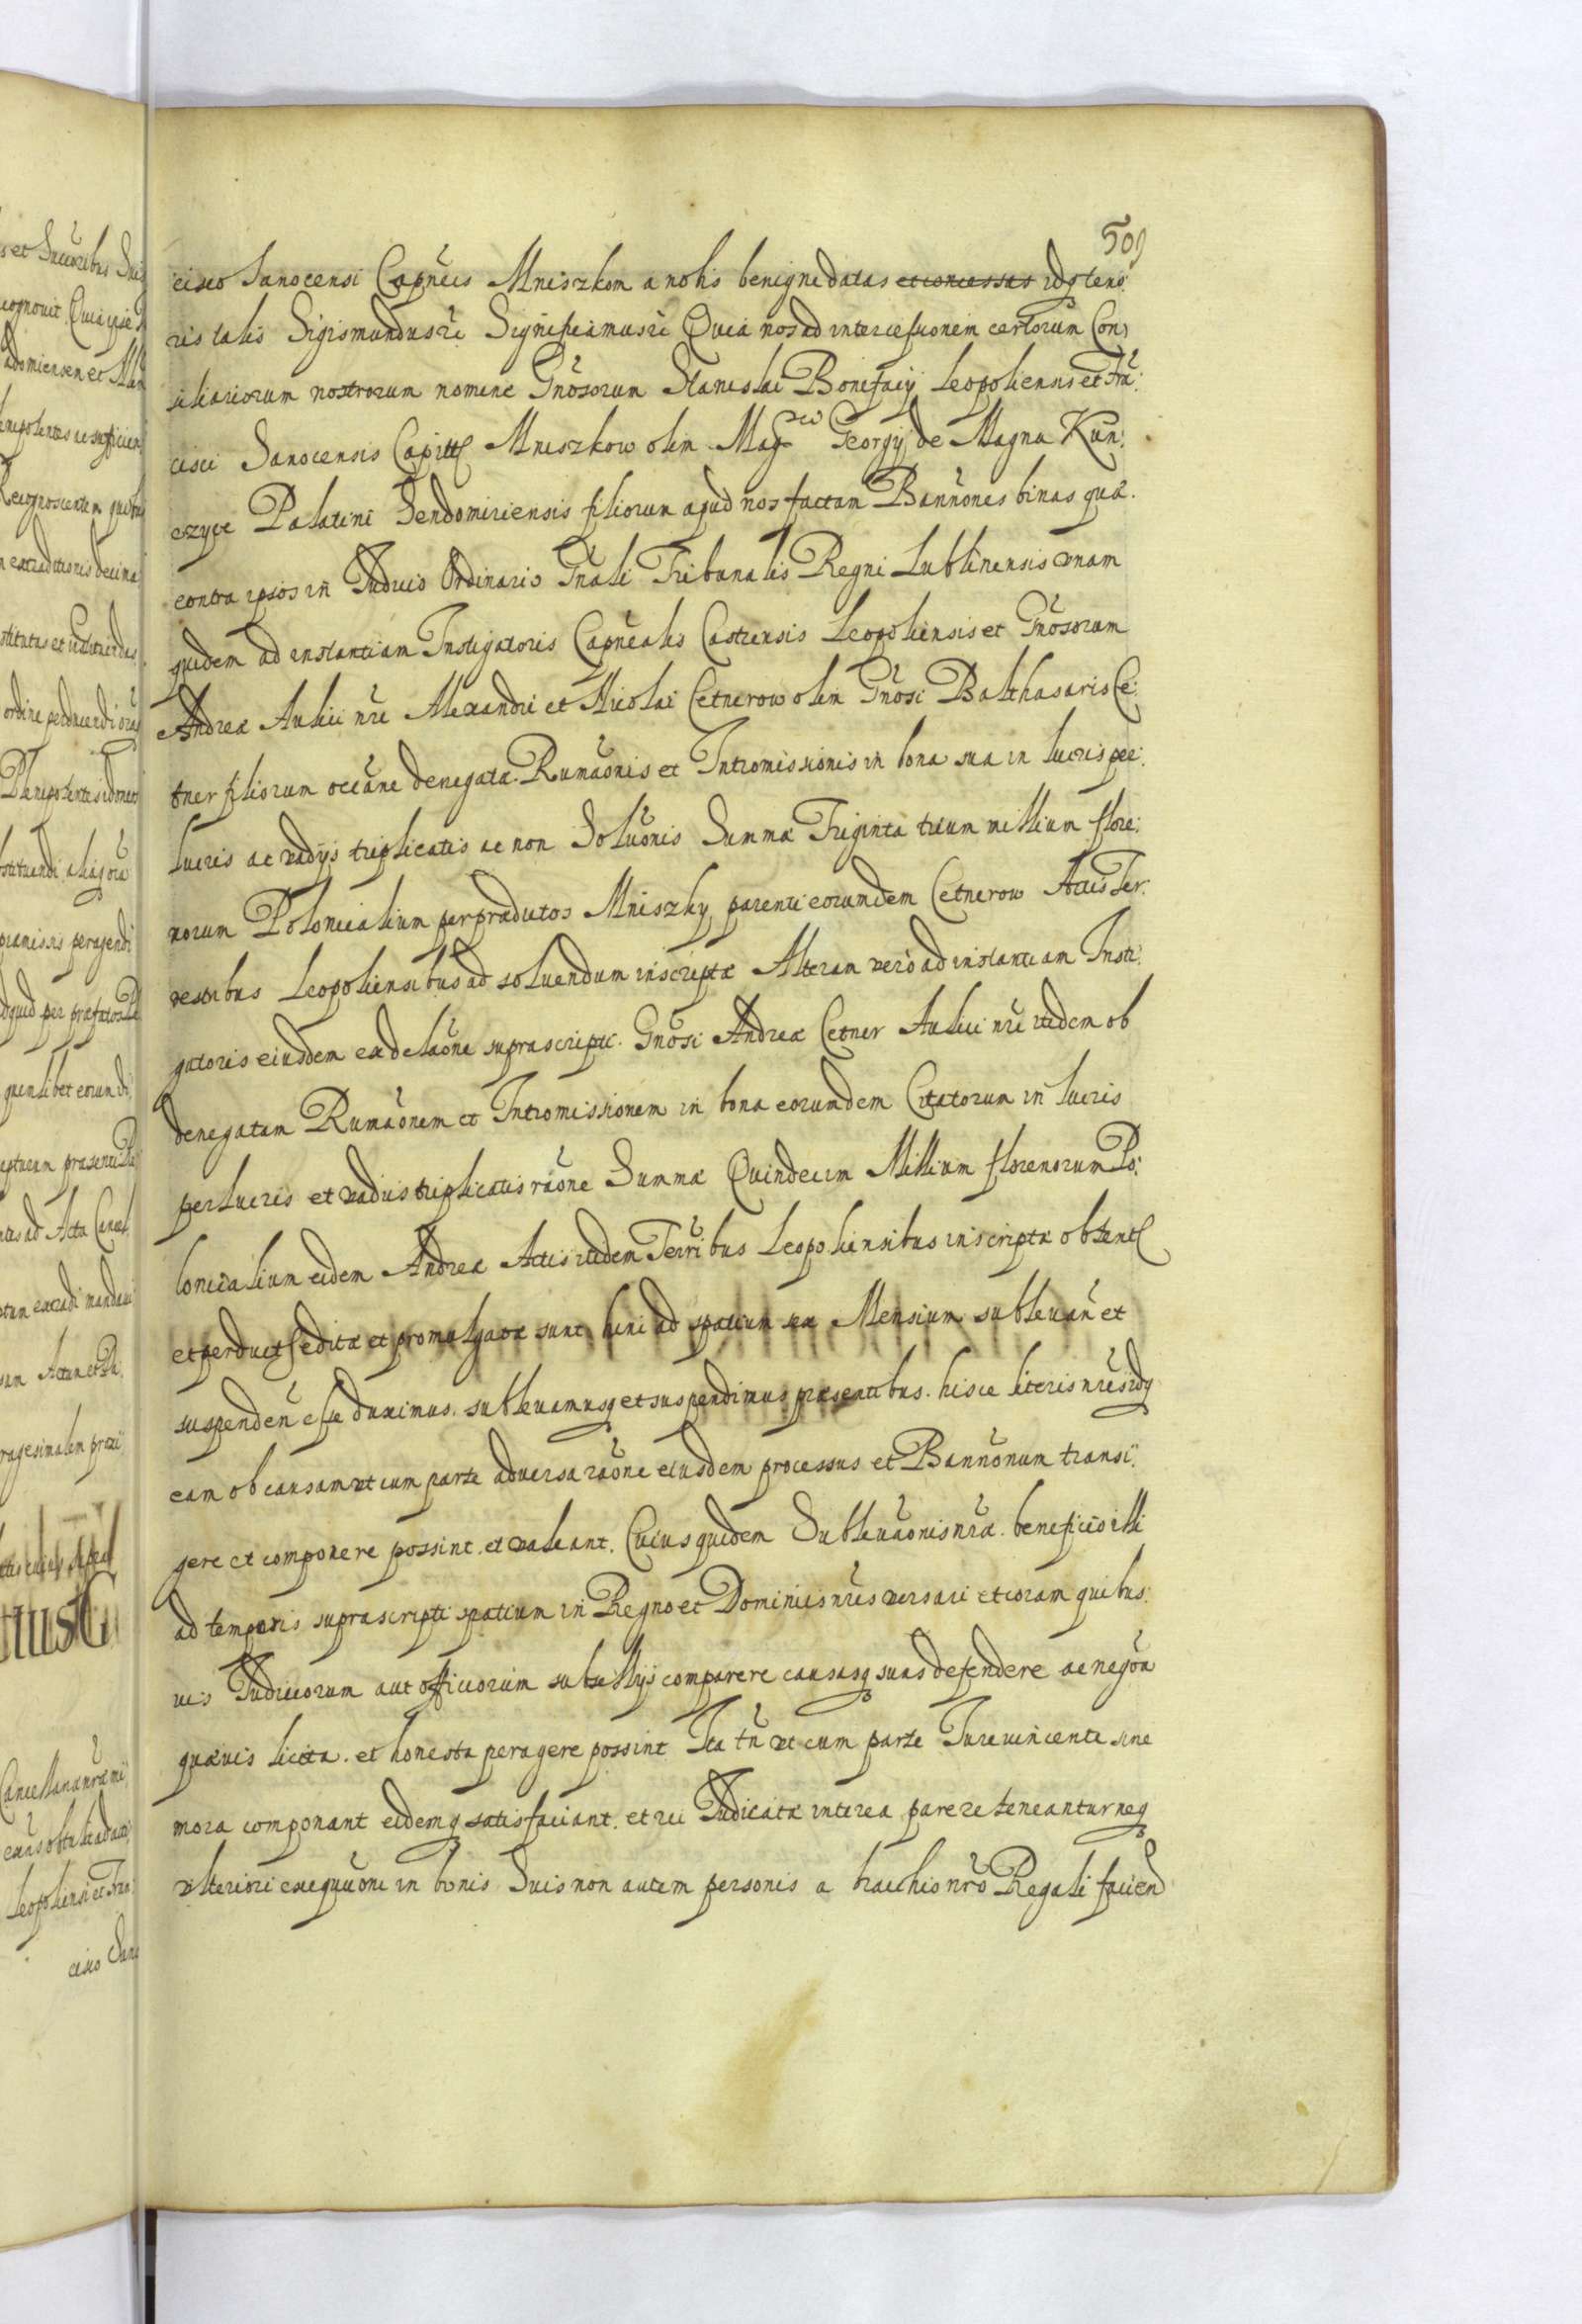 509
cisco Sanocensi Capneis Mniszkom a nobis benigne datas et concessas idq teno:
ris talis Sigismundus rc Significamus rc Quia nos ad intercessionem certorum Con:
siliariorum nostrorum nomine Gnosorum Stanislai Bonifacij Leopoliensis et Fra:
cisci Sanocensis Capitt Mniszkow olim Magci Georgij de Magna Kun:
czyce Palatini Sendomiriensis filiorum apud nos factam Bannones binas quæ.
contra ipsos in Judicio Ordinario Gnali Tribunalis Regni Lublinensis vnam
quidem ad instantiam Instigatoris Capnealis Castrensis Leopoliensis et Gnosorum
Andreæ Aulici nri Alexandri et Nicolai Cetnerow olim Gnosi Balthasaris Ce:
tner filiorum occane denegatæ Rumaonis et Intromissionis in bona sua in lucris per:
lucris ac vadijs triplicatis ac non Soluonis Summæ Triginta trium millium flore:
norum Polonicalium per prædictos Mniszky parenti eorundem Cetnerow Actis Ter:
restribus Leopoliensibus ad soluendum inscriptæ Alteram vero ad instantiam Insti:
gatoris eiusdem ex delaone suprascripti. Gnosi Andreæ Cetner Aulici nri itidem ob
denegatam Rumaonem et Intromissionem in bona eorundem Citatorum in lucris
perlucris et vadiis triplicatis raone Summæ Quindecim Millium florenorum Po:
lonicalium eidem Andreæ Actis itidem Terribus Leopoliensibus inscriptæ obtent
et perduct editæ et promulgatæ sunt hinc ad spatium sex Mensium subleuan et
suspenden esse duximus. subleuamusq et suspendimus præsentibus. hisce literis nris idq
eam ob causam vt cum parte aduersa raone eiusdem processus et Bannonum transi:
gere et componere possint. et valeant. Cuius quidem Subleuaonis nræ. beneficio illi
ad temporis suprascripti spatium in Regno et Dominiis nris versari et coram quibus:
uis Judiciorum aut officiorum subsellijs comparere causasq suas defendere ac negoa
quæuis licita. et honesta peragere possint Ita tn vt cum parte Iure vincente sine
mora componant eidemq satisfaciant. et rei Judicatæ interea parere teneantur neq
vlteriori exequuone in bonis Suis non autem personis a brachio nro Regali faciend